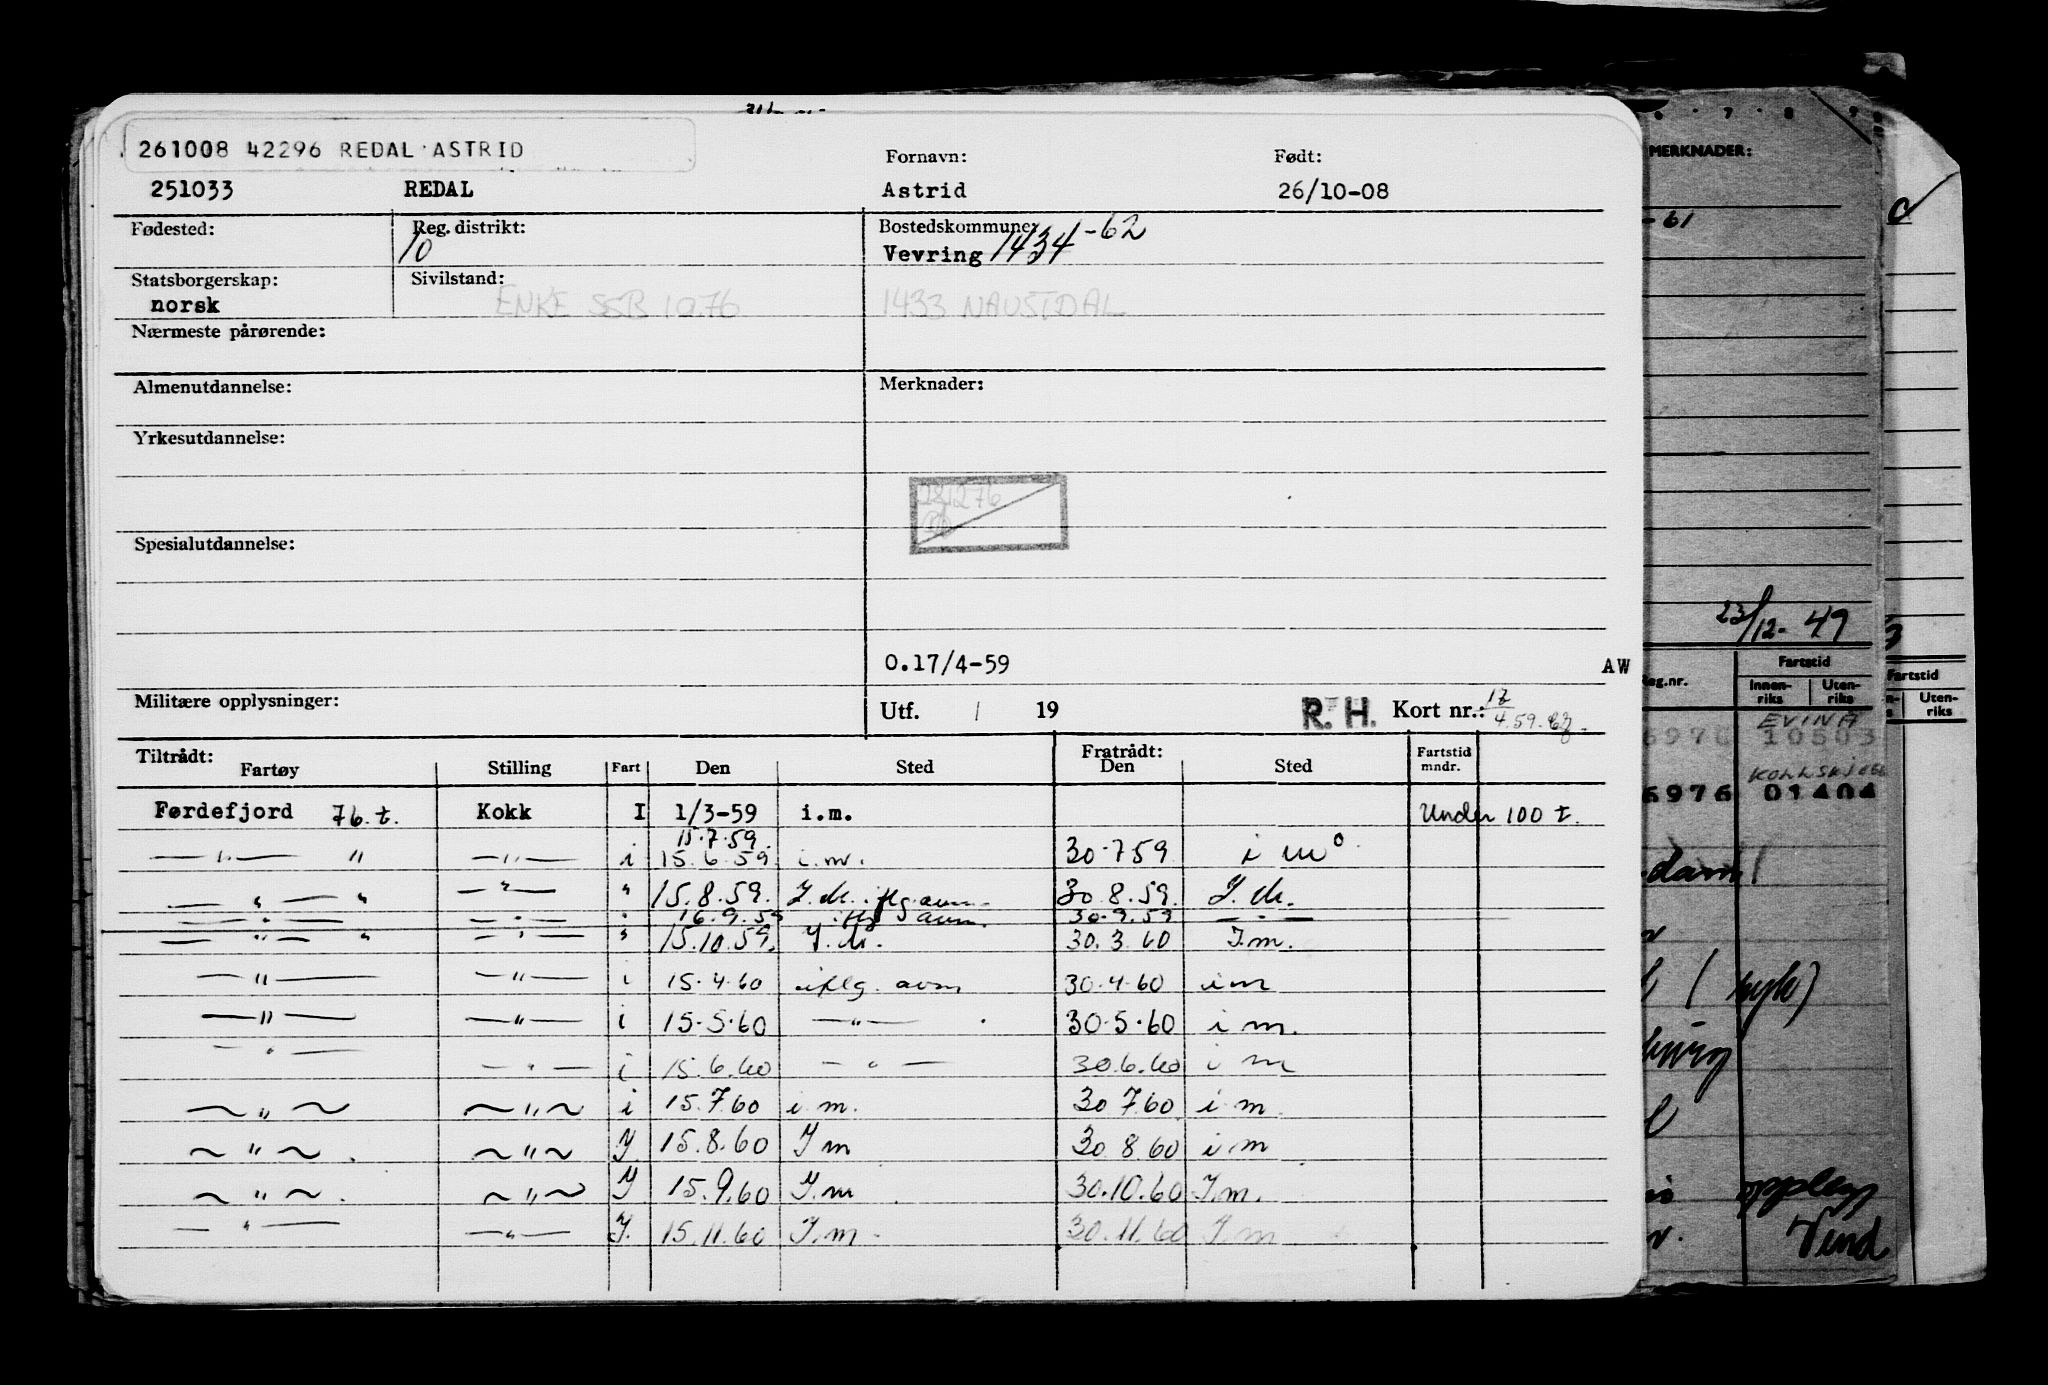 261008 42296 REDAL ASTRID
Fornavn: Født:
251033 REDAL Astrid 26/10-08
Fødested: Reg. distrikt: 10 Bostedskommune: Vevring 1434 -62
Statsborgerskap: norsk Sivilstand: ENKE SSB 1076 1433 NAUSTDAL
Nærmeste pårørende:
Almenutdannelse: Merknader:
Yrkesutdannelse:
281276
Spesialutdannelse:
O.17/4-59 AW
Militære opplysninger: Utf. / 19 R. H. Kort nr.: 17/4.59.
Tiltrådt: Fratrådt: Fartstid mndr.
Fartøy Stilling Fart Den Sted Den Sted
Førdefjord 76.t. Kokk I 1/3-59 i.m. Under 100 t.
15.7.59.
—"— " —"— i 15.6.59 i.m. 30.7 59 i m
—"— " —"— " 15.8.59. I.M. iflg. avm. 30.8.59. I.M.
—"— —"— " 16.9.59 iflg avm. 30.9.59 —"—
—"— " —"— " 15.10.59. I.M. 30.3.60 I.m.
—"— —"— i 15.4.60 iflg. avm 30.4.60 i m
—"— —"— i 15.5.60 —"— 30.5.60 i m.
—"— —"— i 15.6.60 —"— 30.6.60 i m
~"~ ~"~ i 15.7.60 i m. 30 7.60 i m.
~"~ . ~"~ I 15.8.60 I m 30 8.60 i m
~"~ . ~"~ I 15.9.60 I.m 30.10.60 I.m.
—"— —"— I. 15.11.60 I.m. 30.11.60 I.m
7 8 9
MERKNADER:
-61
23/12-49
Fartstid
Reg.nr. Innenriks Utenriks
EVINA
6976 10503
6976 01404
Fartstid
Utenriks
Vend